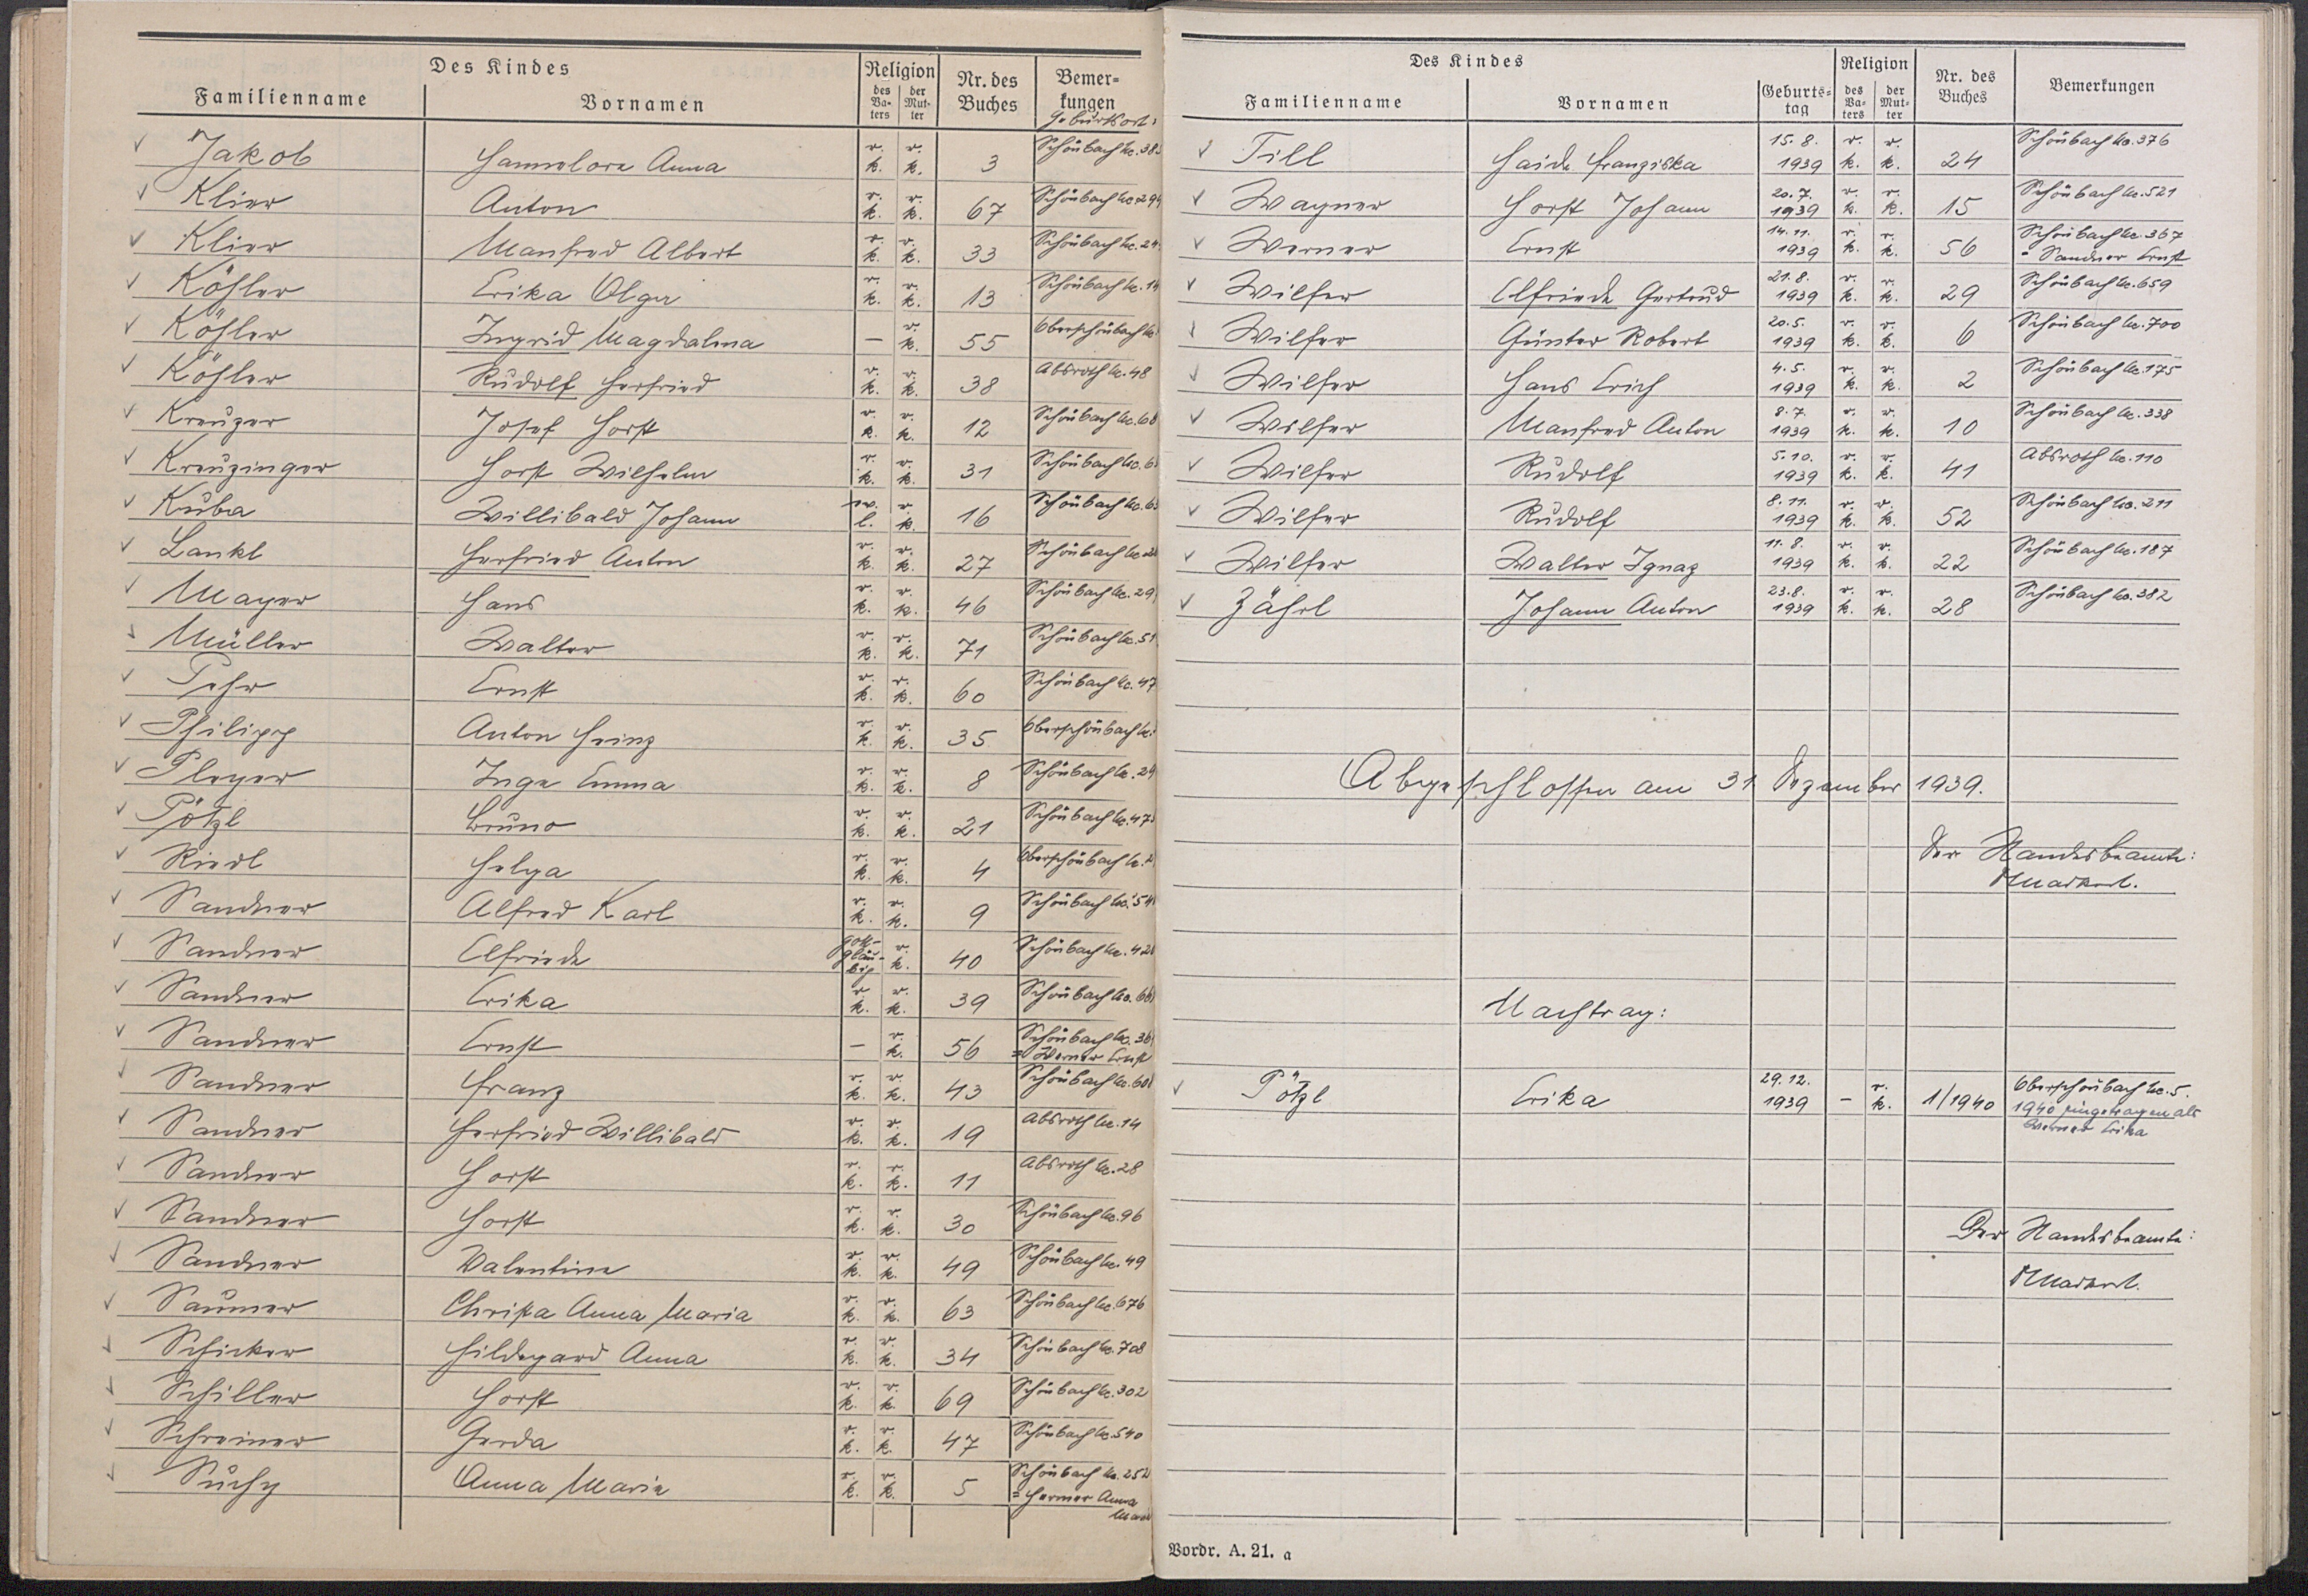 Des Kindes
Religion
Nr. des Buches
Bemer-
kungen
Familienname
Vornamen
des Va-ters
der Mut-ter
Geburtsort:
Jakob Hannelore Anna r. k. r. k. 3 Schönbach No. 38
Klier Anton r. k. r. k. 67 Schönbach No. 294
Klier Manfred Albert r. k. r. k. 33 Schönbach No. 24
Köhler Erika Olga r. k. r. k. 13 Schönbach No. 14
Köhler Ingrid Magdalena — r. k. 55 Oberschönbach No.
Köhler Rudolf Herfried r. k. r. k. 38 Absroth No. 48
Kreuzer Josef Horst r. k. r. k. 12 Schönbach No. 60
Kreuzinger Horst Wilhelm r. k. r. k. 31 Schönbach No. 6
Kuba Willibald Johann ev. l. r. k. 16 Schönbach No. 6
Lankl Herfried Anton r. k. r. k. 27 Schönbach No. 2
Mayer Hans r. k. r. k. 46 Schönbach No. 29
Müller Walter r. k. r. k. 71 Schönbach No. 51
Pehr Ernst r. k. r. k. 60 Schönbach No. 47
Philipp Anton Heinz r. k. r. k. 35 Oberschönbach No.
Ployer Inge Emma r. k. r. k. 8 Schönbach No. 24
Pötzl Bruno r. k. r. k. 21 Schönbach No. 47
Riedl Helga r. k. r. k. 4 Oberschönbach No.
Sandner Alfred Karl r. k. r. k. 9 Schönbach No. 54
Sandner Elfriede gott-gläu-big r. k. 40 Schönbach No. 42
Sandner Erika r. k. r. k. 39 Schönbach No. 66
Sandner Ernst — r. k. 56 Schönbach No. 36
= Werner Ernst
Sandner Franz r. k. r. k. 43 Schönbach No. 60
Sandner Herfried Willibald r. k. r. k. 19 Absroth No. 14
Sandner Horst r. k. r. k. 11 Absroth No. 28
Sandner Horst r. k. r. k. 30 Schönbach No. 96
Sandner Valentine r. k. r. k. 49 Schönbach No. 49
Saumer Christa Anna Maria r. k. r. k. 63 Schönbach No. 676
Schicker Hildegard Anna r. k. r. k. 34 Schönbach No. 708
Schiller Horst r. k. r. k. 69 Schönbach No. 302
Schreiner Gerda r. k. r. k. 47 Schönbach No. 540
Suchy Anna Maria r. k. r. k. 5 Schönbach No. 252
= Hermer Anna
Maria
Des Kindes
Religion
Nr. des Buches
Bemerkungen
Familienname
Vornamen
Geburts-tag
des Va-ters
der Mut-ter
Till Haide Franziska 15. 8. 1939 r. k. r. k. 24 Schönbach No. 376
Wagner Horst Johann 20. 7. 1939 r. k. r. k. 15 Schönbach No. 521
Werner Ernst 14. 11. 1939 r. k. r. k. 56 Schönbach No. 367
= Sandner Ernst
Wilfer Elfriede Gertrud 21. 8. 1939 r. k. r. k. 29 Schönbach No. 659
Wilfer Günter Robert 20. 5. 1939 r. k. r. k. 6 Schönbach No. 700
Wilfer Hans Erich 4. 5. 1939 r. k. r. k. 2 Schönbach No. 175
Wilfer Manfred Anton 8. 7. 1939 r. k. r. k. 10 Schönbach No. 338
Wilfer Rudolf 5. 10. 1939 r. k. r. k. 41 Absroth No. 110
Wilfer Rudolf 8. 11. 1939 r. k. r. k. 52 Schönbach No. 211
Wilfer Walter Ignaz 11. 8. 1939 r. k. r. k. 22 Schönbach No. 187
Zährl Johann Anton 23. 8. 1939 r. k. r. k. 28 Schönbach No. 382
Abgeschlossen am 31 Dezember 1939.
Der Standesbeamte:
Nachtrag:
Pötzl Erika 29. 12. 1939 — r. k. 1/1940 Oberschönbach No. 5.
1940 eingetragen als
Werner Erika
Der Standesbeamte:
Vordr. A. 21. a